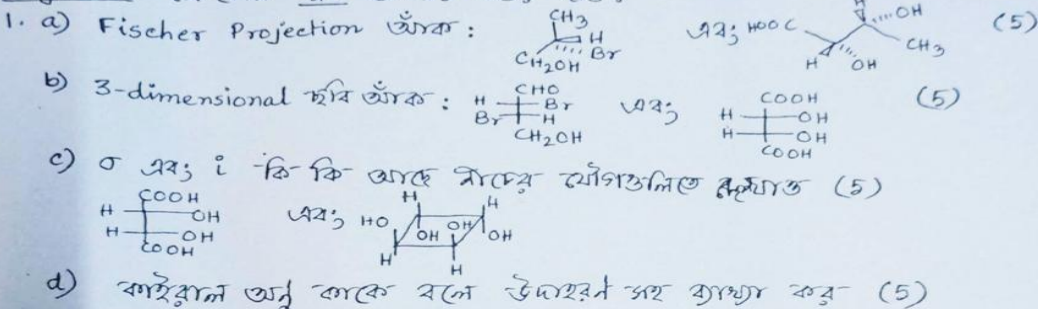 1. a) Fischer Projection আঁক : CH3 H Br CH2OH এবং HOOC H OH H OH CH3 (5)
b) 3-dimensional ছবি আঁক : CHO H Br Br H CH2OH এবং COOH H OH H OH COOH (5)
c) σ এবং i কি-কি- আছে নীচের যৌগগুলিতে (5)
COOH H OH H OH COOH এবং H H HO OH OH OH H H
d) কাইরাল অনু কাকে বলে উদাহরন সহ ব্যাখ্যা কর (5)